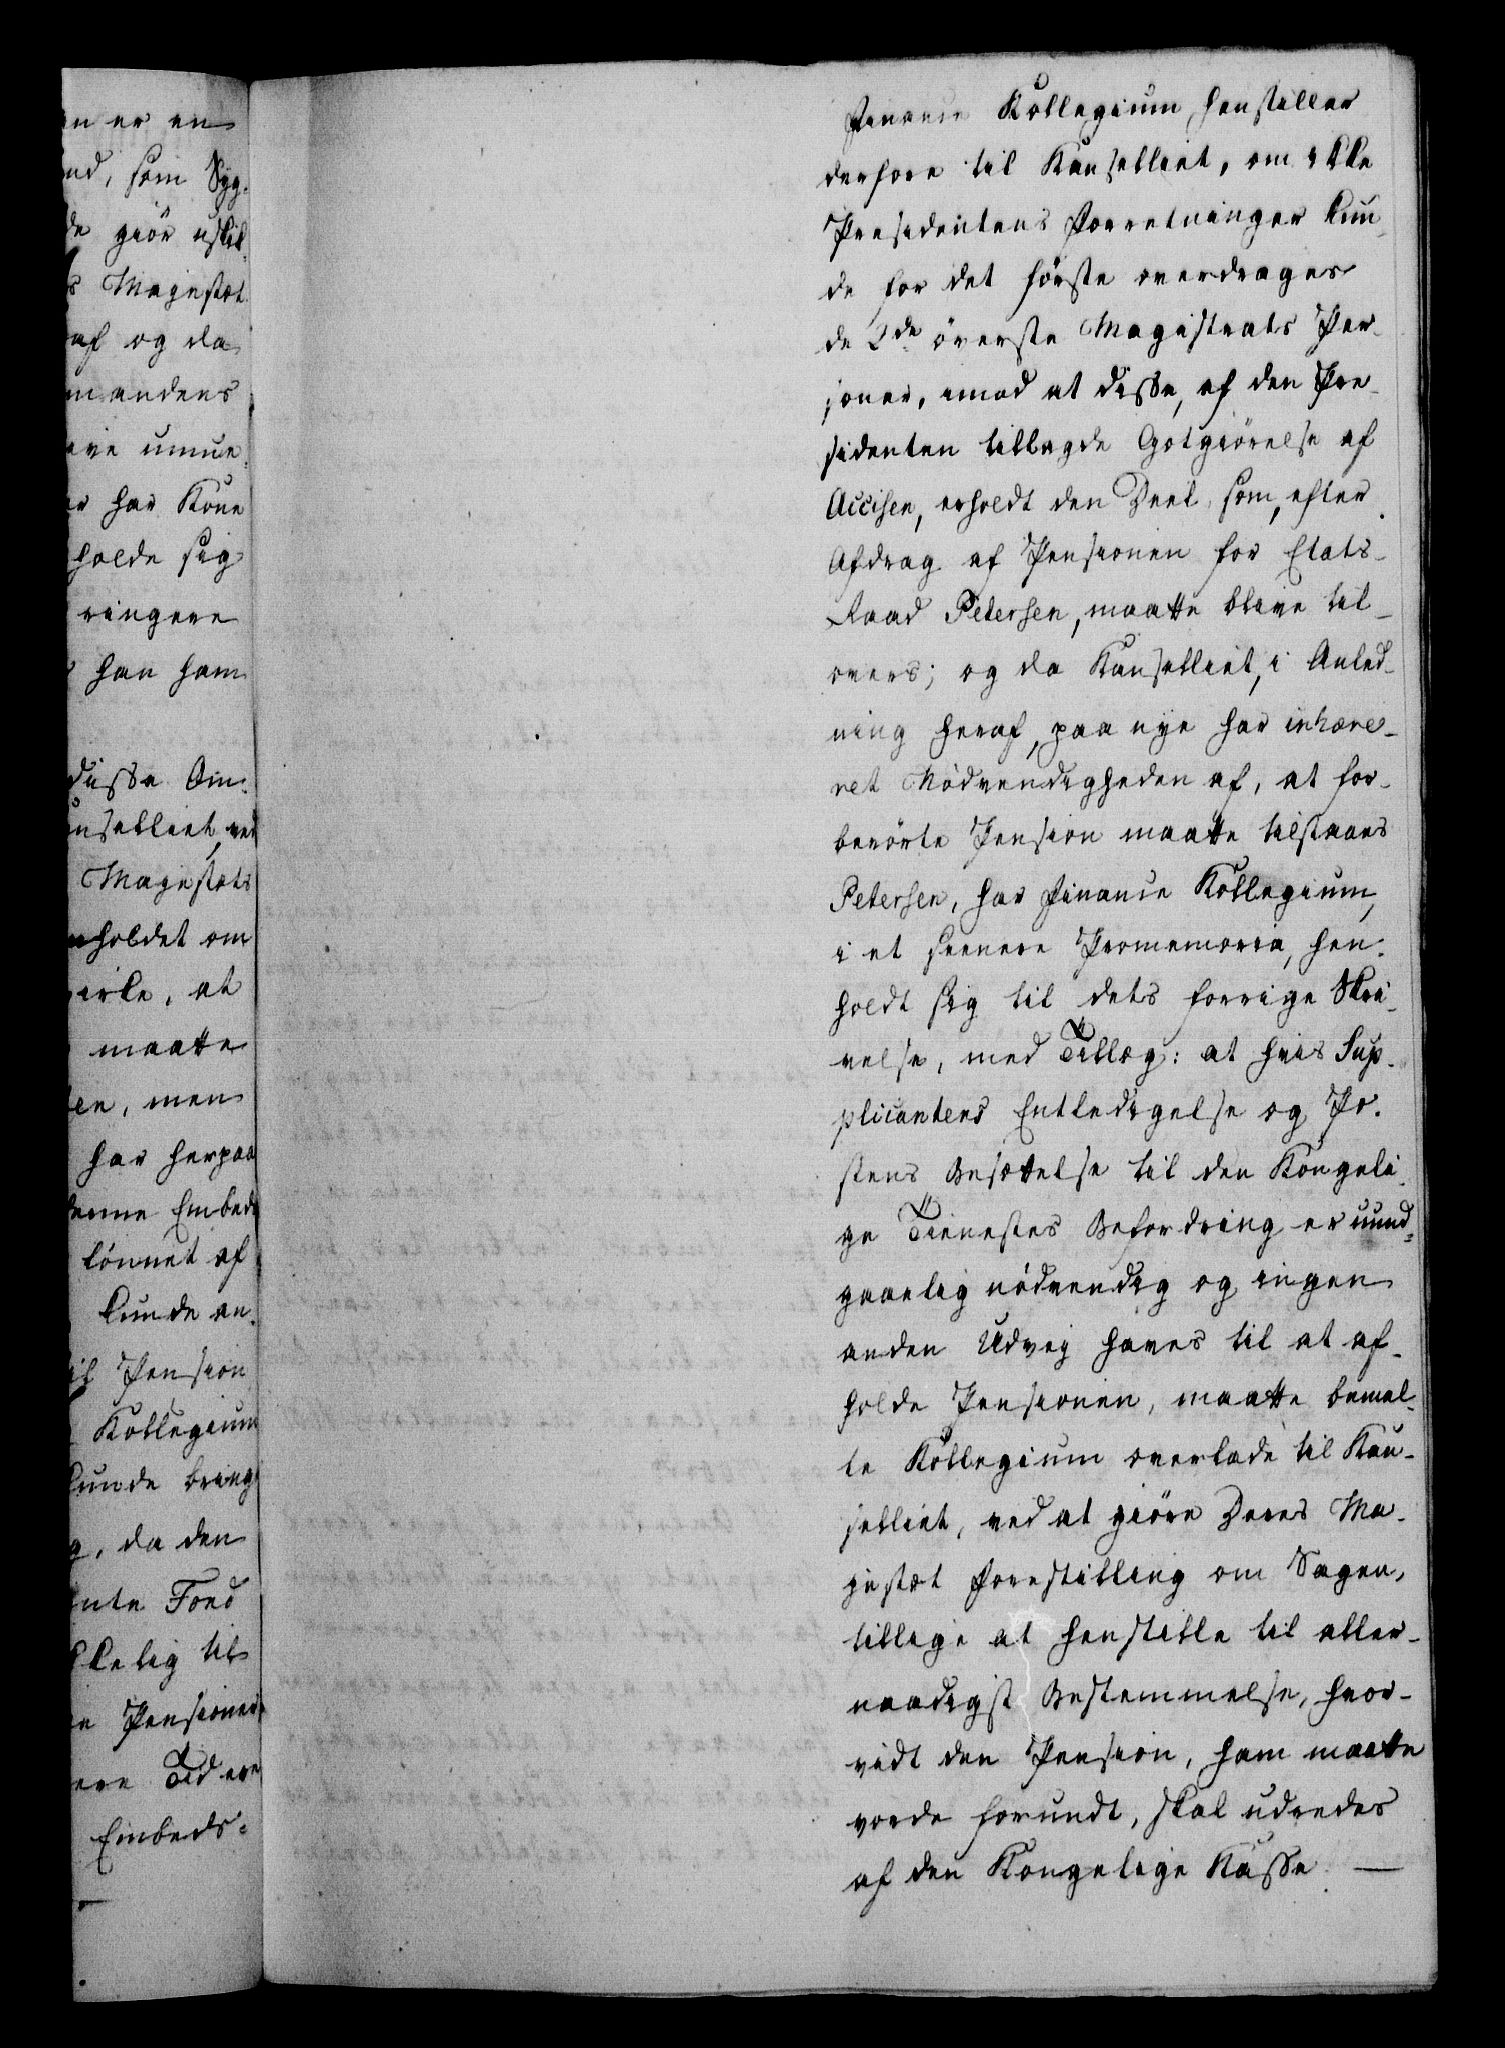 en er en
nd, som Syg-
de giör uskik-
s Majestæt
af og da
mandens
ave unna
er har Kone
holde sig
ringere
han ham
disse Om-
nselliet, ved
Majestæts
nholdet om
virke, at
maatte
en, men
har herpaa
denne Embeds
lönnet af
kunde an-
il Pension
Kollegium
kunde bring
g, da den
nte Fond
kkelig til
n Pensioner,
ere Tid ere
Embeds-
Finance Kollegium henstiller
derfore til Kanselliet, om ikke
Presidentens Forretninger kun-
de for det förste overdrages
de 2de överste Magistrats Per-
soner, imod at disse, af den Pre-
sidenten tillagde Gotgiörelse af
Accisen, erholdt den Deel som, efter
Afdrag af Pensionen for Etats-
Raad Petersen, maatte blive til-
overs; og da Kanselliet, i Anled-
ning heraf, paa nye har inhære-
ret Nödvendigheden af, at for-
berörte Pension maatte tilstaaes
Petersen, har Finance Kollegium,
i et seenere Promemoria, hen-
holdt sig til dets forrige Skri-
velse, med Tillæg: at hvis Sup-
plicantens Entledigelse og Po-
stens Besættelse til den Kongeli-
ge Tienestes Befordring er uund-
gaaelig nödvendig og ingen
anden Udvej haves til at af-
holde Pensionen, maatte bemel-
te Kollegium overlade til Kan-
selliet, ved at giöre Deres Ma-
jestæt Forestilling om Sagen,
tillige at henstille til aller-
naadigst Bestemmelse, hvor-
vidt den Pension, ham maatte
vorde forundt, skal udredes
af den Kongelige Kasse. —